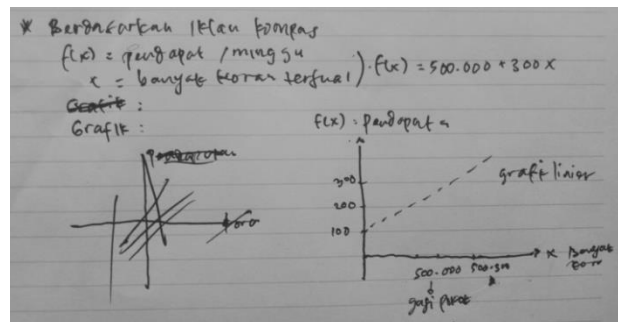 * Berdasarkan Iklan kompas
f(x) = pendapat / minggu
x = banyak koran terjual ) . f(x) = 500.000 + 300x
Grafik :
Grafik :
f(x) = pendapata
300
200
100
grafik linier
x Banyak
koro
500.000 500.300
gaji pokok